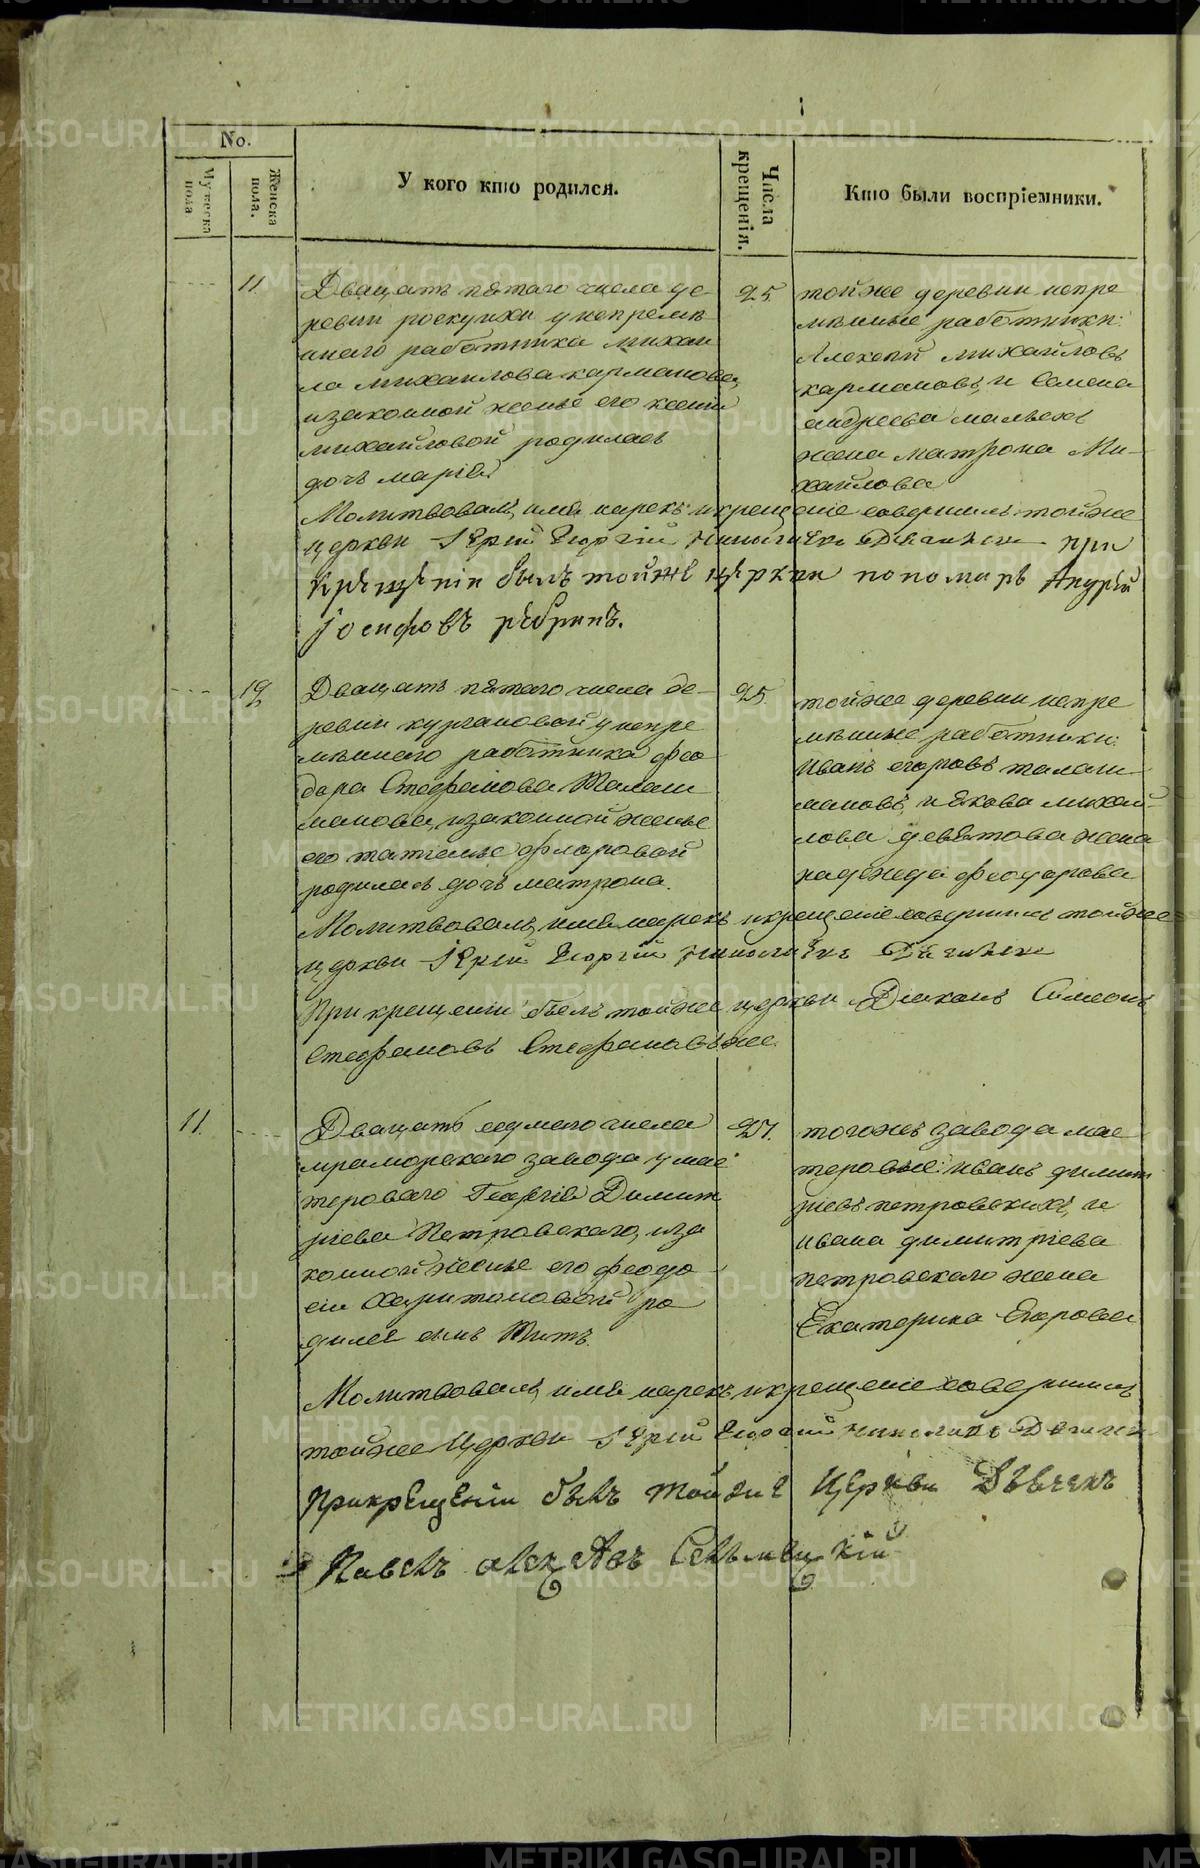 No.
Мужеска пола
Женска пола.
У кого кто родился.
Числа крещенія.
Кто были воспріемники.
11
Дватцать пѣтаго числа де
ревни роскуихи у непремѣ
ннаго работника михаи
ла михаилова карманова,
изаконной женые его ксении
михайловой родилась
дочь маріѣ
25
тойже деревни непре
мѣнные работники:
Алексѣй михайловъ
кармановъ, и Семена
андреева малыхъ
жена матрона Ми-
хаилова
Молитвовалъ, имя нарекъ и крещеніе совершилъ тойже
церкви Іерей Георгій при
крещеніи былъ тойже церкви пономарь Андрей
Іосифовъ
12
Дватцать пѣтаго числа де-
ревни кургановой у непре
мѣннаго работника фео
дора Стефанова Талаш
манова, изаконной женые
его татіаные флоровой
родилась дочь матрона.
25
тойже деревни непре
мѣнные работники:
иванъ егоровъ талаш-
мановъ, и якова михай-
лова девѣтова жена
надежда феодорова
Молитвовалъ, имя нарекъ и крещеніе совершилъ тойже
церкви Іерей Георгій
При крещеніи былъ тойже церкви Діаконъ Симеонъ
Стефановъ Стефановъ же.
11.
Дватцать седмаго числа
мраморскаго завода у мас
тероваго Георгія Димит
ріева Петровскаго, иза
конной женые его феодо
сіи Харитоновой ро
дился сынъ Титъ.
27.
тогожъ завода мас
теровые: иванъ димит
ріевъ петровскихъ, и
ивана димитріева
петровскаго жена
Екатерина Егорова
Молитвовалъ, имя нарекъ, и крещеніе совершилъ
тойже Церкви Іерей Георгій
При крещеніи былъ тойже Церкви Дьячекъ
Павелъ
METRIKI.GASO-URAL.RU